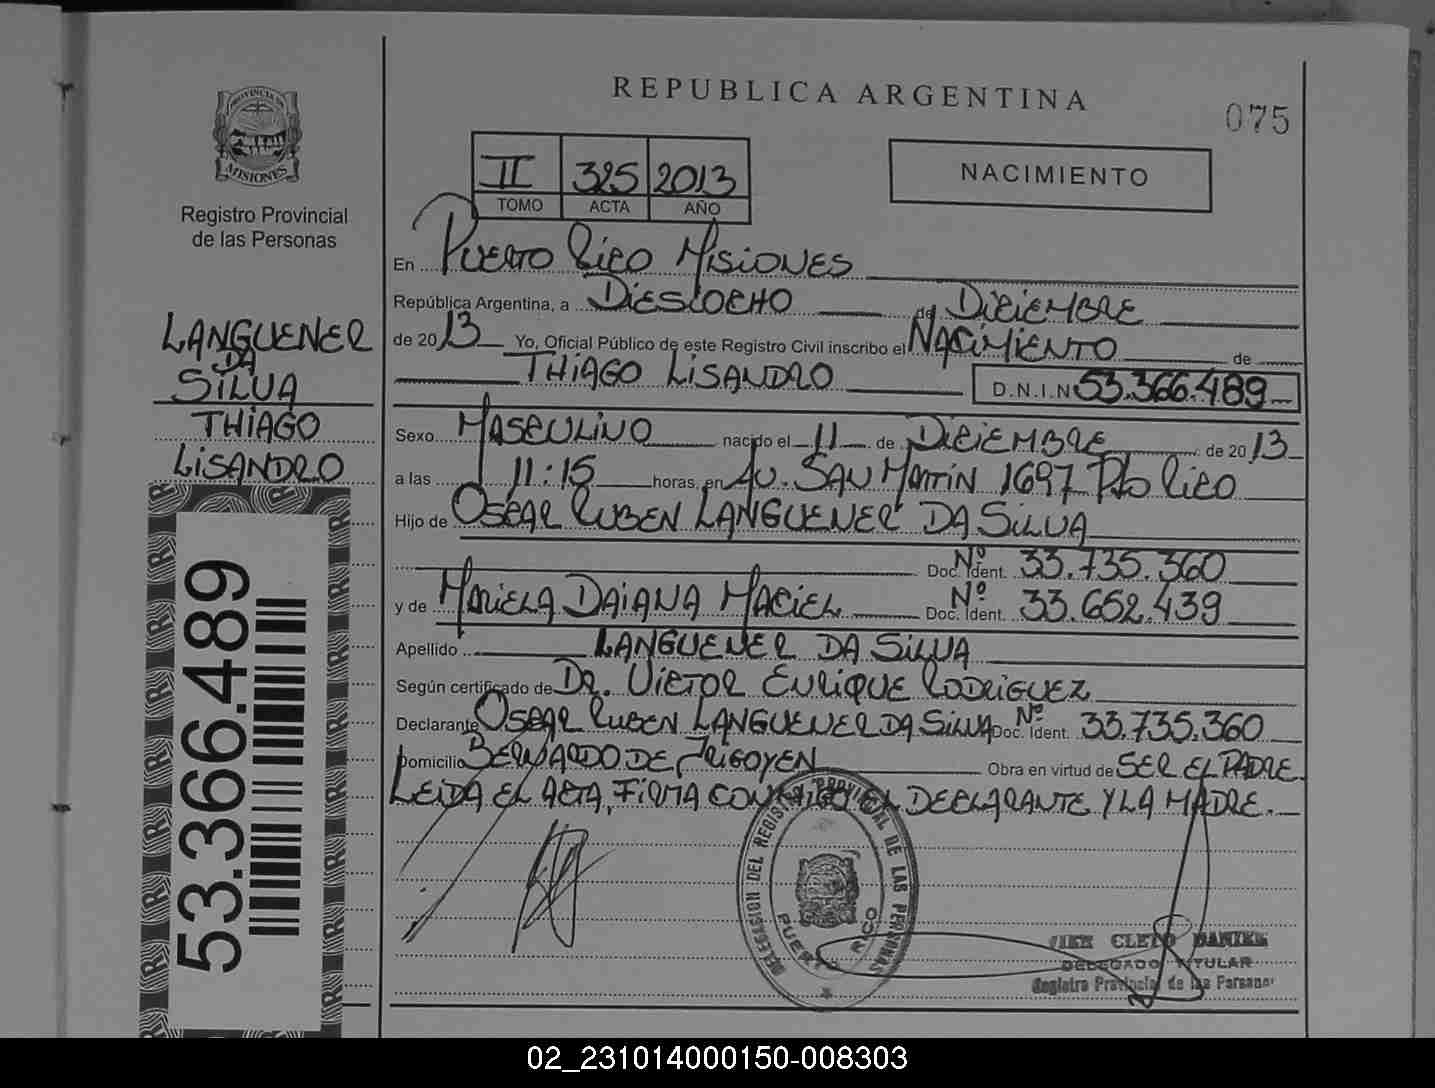 REPUBLICA ARGENTINA
075
PROVINCIA DE
MISIONES
Registro Provincial
de las Personas
II 325 2013
TOMO ACTA AÑO
NACIMIENTO
En PUERTO RICO MISIONES
República Argentina, a DIESIOCHO de DICIEMBRE
de 2013 Yo, Oficial Público de este Registro Civil inscribo el NACIMIENTO de
THIAGO LISANDRO D.N.I.Nº 53.366.489
LANGUENER
DA
SILVA
THIAGO
LISANDRO
Sexo MASCULINO nacido el 11 de DICIEMBRE de 2013
a las 11:15 horas, en AV. SAN MARTIN 1697 Pto RICO
Hijo de OSCAR RUBEN LANGUENER DA SILVA
Doc. Ident. Nº 33.735.360
y de MARIELA DAIANA MACIEL Doc. Ident. Nº 33.652.439
Apellido LANGUENER DA SILVA
Según certificado de DR. VICTOR ENRIQUE RODRIGUEZ
Declarante OSCAR RUBEN LANGUENER DA SILVA Doc. Ident. Nº 33.735.360
Domicilio BERNARDO DE IRIGOYEN Obra en virtud de SER EL PADRE
LEIDA EL ACTA, FIRMA CONMIGO EL DECLARANTE Y LA MADRE.
53.366.489
DELEGACION DEL REGISTRO PROVINCIAL DE LAS PERSONAS
PUERTO RICO
CLETO DANIEL
DELEGADO TITULAR
Registro Provincial de las Personas
02_231014000150-008303